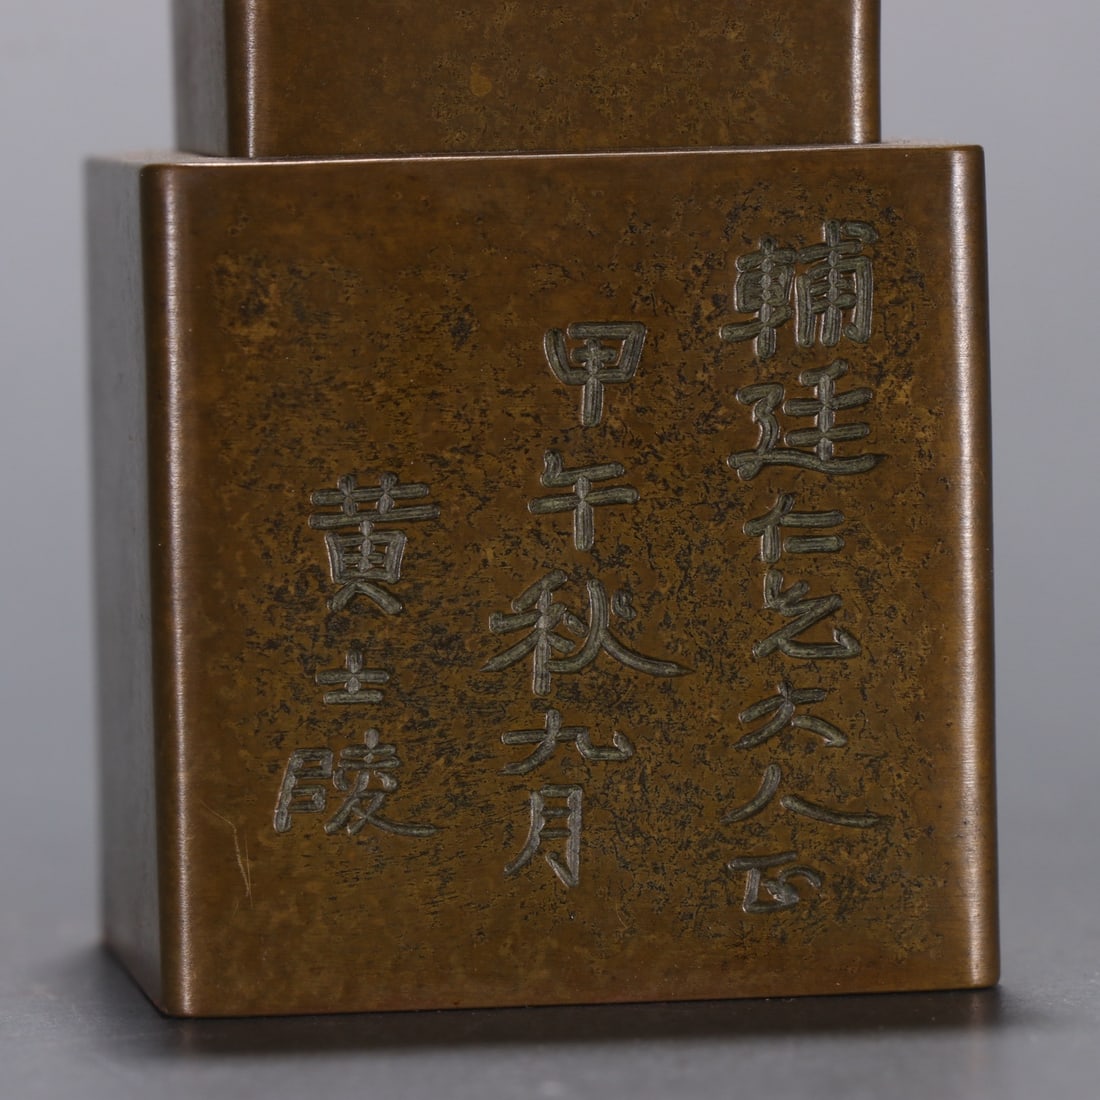 輔廷仁兄大人正
甲午秋九月
黄士陵